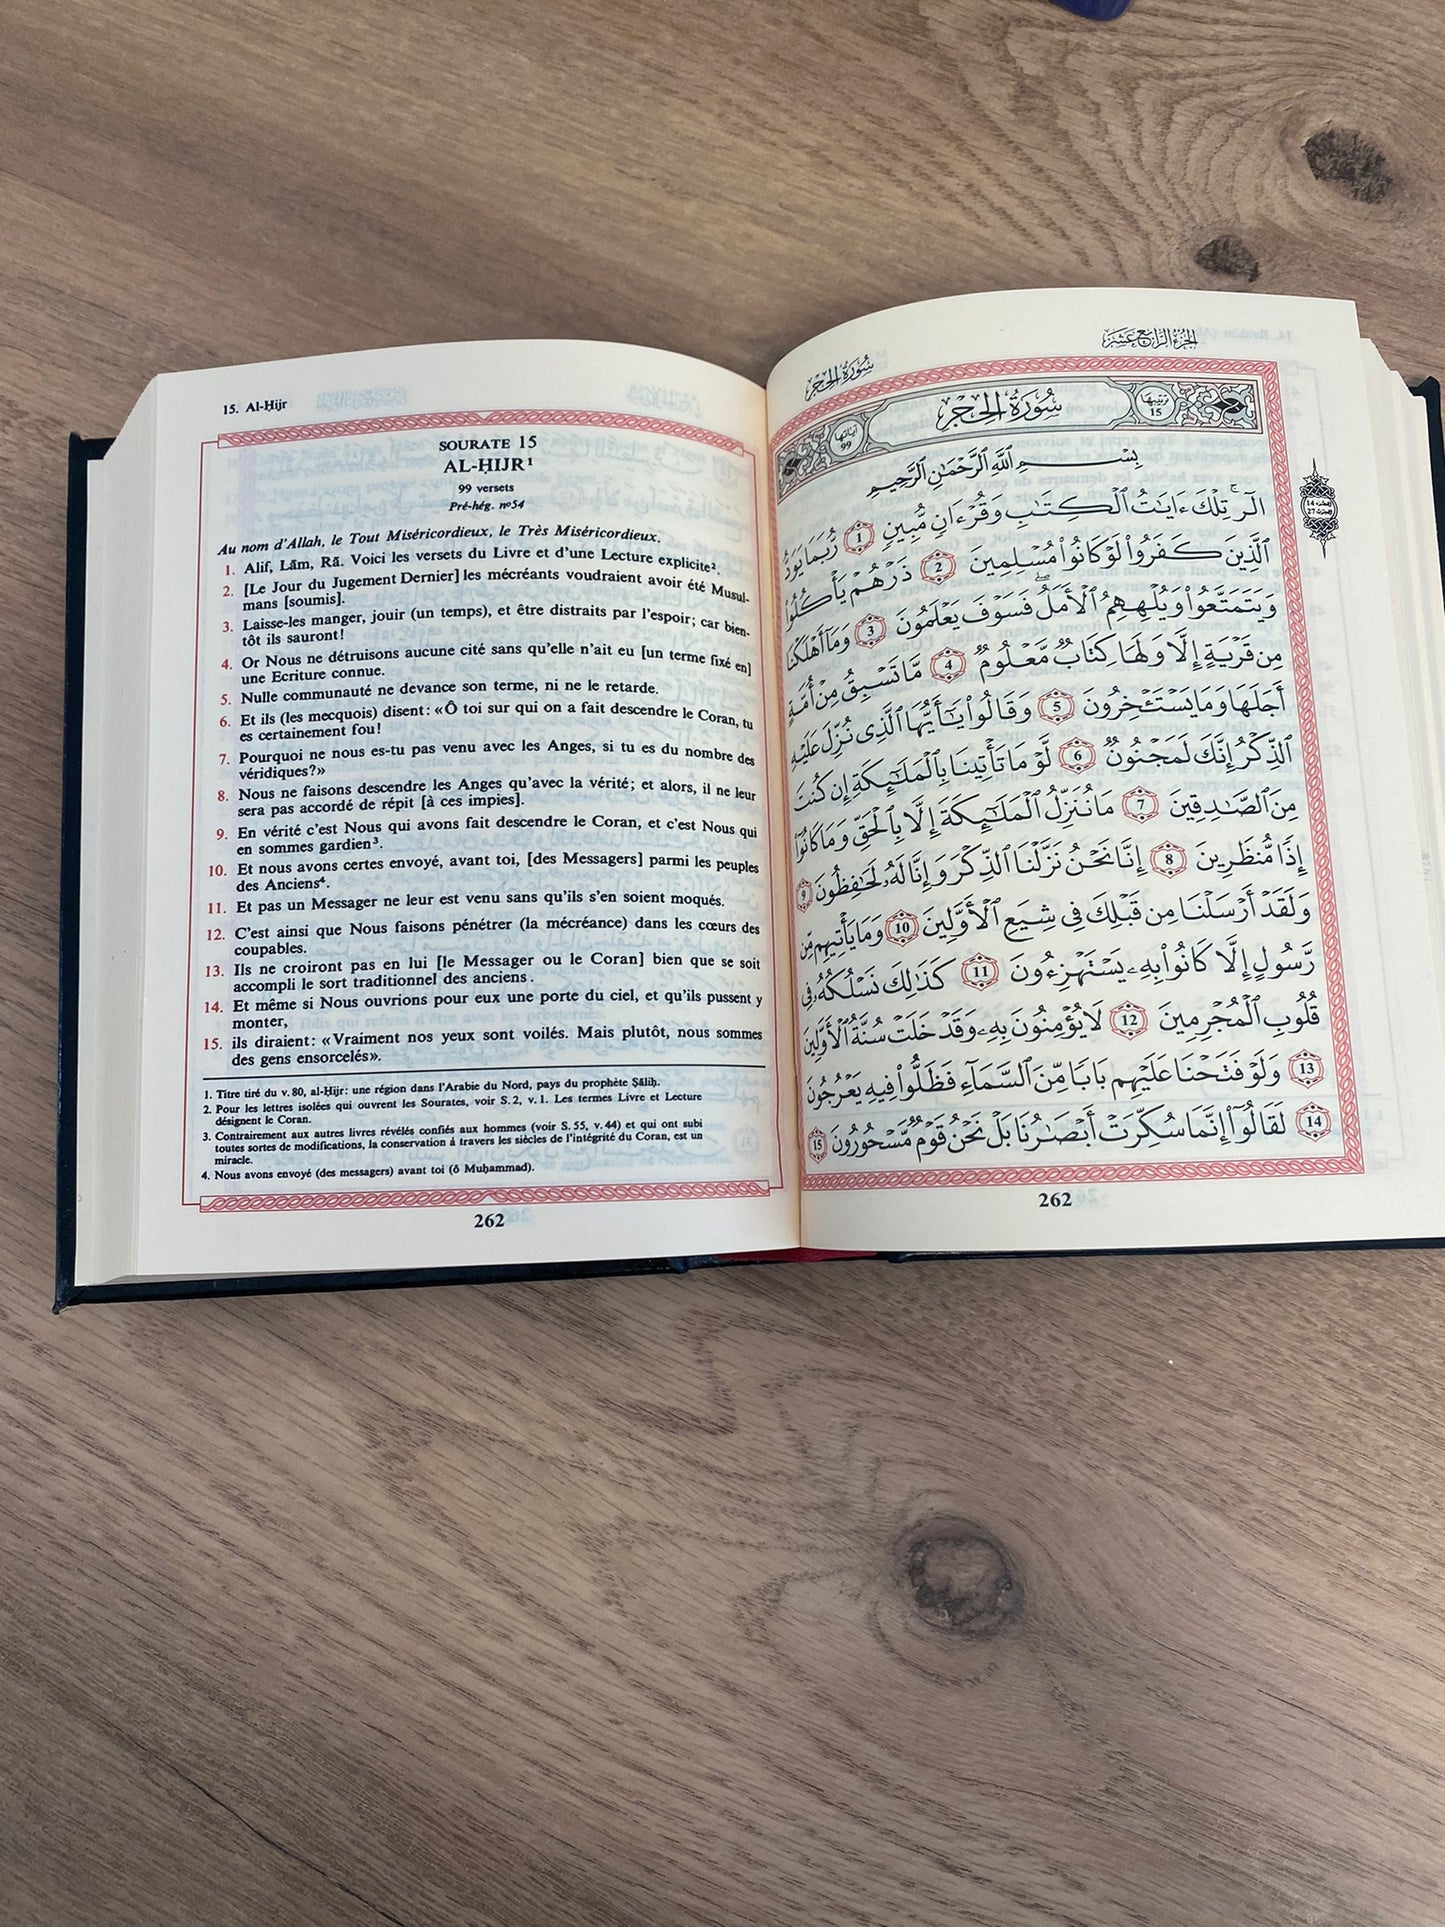 15. Al-Ḥijr
SOURATE 15
AL-ḤIJR¹
99 versets
Pré-hég. nº54
Au nom d'Allah, le Tout Miséricordieux, le Très Miséricordieux.
1. Alif, Lām, Rā. Voici les versets du Livre et d'une Lecture explicite².
2. [Le Jour du Jugement Dernier] les mécréants voudraient avoir été Musul-
mans [soumis].
3. Laisse-les manger, jouir (un temps), et être distraits par l'espoir; car bien-
tôt ils sauront!
4. Or Nous ne détruisons aucune cité sans qu'elle n'ait eu [un terme fixé en]
une Ecriture connue.
5. Nulle communauté ne devance son terme, ni ne le retarde.
6. Et ils (les mecquois) disent: «Ô toi sur qui on a fait descendre le Coran, tu
es certainement fou!
7. Pourquoi ne nous es-tu pas venu avec les Anges, si tu es du nombre des
véridiques?»
8. Nous ne faisons descendre les Anges qu'avec la vérité; et alors, il ne leur
sera pas accordé de répit [à ces impies].
9. En vérité c'est Nous qui avons fait descendre le Coran, et c'est Nous qui
en sommes gardien³.
10. Et nous avons certes envoyé, avant toi, [des Messagers] parmi les peuples
des Anciens⁴.
11. Et pas un Messager ne leur est venu sans qu'ils s'en soient moqués.
12. C'est ainsi que Nous faisons pénétrer (la mécréance) dans les cœurs des
coupables.
13. Ils ne croiront pas en lui [le Messager ou le Coran] bien que se soit
accompli le sort traditionnel des anciens.
14. Et même si Nous ouvrions pour eux une porte du ciel, et qu'ils pussent y
monter,
15. ils diraient: «Vraiment nos yeux sont voilés. Mais plutôt, nous sommes
des gens ensorcelés».
1. Titre tiré du v. 80, al-Ḥijr: une région dans l'Arabie du Nord, pays du prophète Ṣāliḥ.
2. Pour les lettres isolées qui ouvrent les Sourates, voir S. 2, v. 1. Les termes Livre et Lecture
désignent le Coran.
3. Contrairement aux autres livres révélés confiés aux hommes (voir S. 55, v. 44) et qui ont subi
toutes sortes de modifications, la conservation à travers les siècles de l'intégrité du Coran, est un
miracle.
4. Nous avons envoyé (des messagers) avant toi (ô Muḥammad).
262
الجزء الرابع عشر
سورة الحجر
ترتيبها 15
سُورَةُ الحِجْر
آياتها 99
بِسْمِ اللَّهِ الرَّحْمَٰنِ الرَّحِيمِ
الٓر ۚ تِلْكَ ءَايَٰتُ ٱلْكِتَٰبِ وَقُرْءَانٍ مُّبِينٍ 1 رُّبَمَا يَوَدُّ
ٱلَّذِينَ كَفَرُواْ لَوْ كَانُواْ مُسْلِمِينَ 2 ذَرْهُمْ يَأْكُلُواْ
وَيَتَمَتَّعُواْ وَيُلْهِهِمُ ٱلْأَمَلُ ۖ فَسَوْفَ يَعْلَمُونَ 3 وَمَآ أَهْلَكْنَا
مِن قَرْيَةٍ إِلَّا وَلَهَا كِتَابٌ مَّعْلُومٌ 4 مَّا تَسْبِقُ مِنْ أُمَّةٍ
أَجَلَهَا وَمَا يَسْتَـْٔخِرُونَ 5 وَقَالُواْ يَٰٓأَيُّهَا ٱلَّذِى نُزِّلَ عَلَيْهِ
ٱلذِّكْرُ إِنَّكَ لَمَجْنُونٌ 6 لَّوْ مَا تَأْتِينَا بِٱلْمَلَٰٓئِكَةِ إِن كُنتَ
مِنَ ٱلصَّٰدِقِينَ 7 مَا نُنَزِّلُ ٱلْمَلَٰٓئِكَةَ إِلَّا بِٱلْحَقِّ وَمَا كَانُوٓاْ
إِذًا مُّنظَرِينَ 8 إِنَّا نَحْنُ نَزَّلْنَا ٱلذِّكْرَ وَإِنَّا لَهُۥ لَحَٰفِظُونَ 9
وَلَقَدْ أَرْسَلْنَا مِن قَبْلِكَ فِى شِيَعِ ٱلْأَوَّلِينَ 10 وَمَا يَأْتِيهِم مِّن
رَّسُولٍ إِلَّا كَانُواْ بِهِۦ يَسْتَهْزِءُونَ 11 كَذَٰلِكَ نَسْلُكُهُۥ فِى
قُلُوبِ ٱلْمُجْرِمِينَ 12 لَا يُؤْمِنُونَ بِهِۦ وَقَدْ خَلَتْ سُنَّةُ ٱلْأَوَّلِينَ
13 وَلَوْ فَتَحْنَا عَلَيْهِم بَابًا مِّنَ ٱلسَّمَآءِ فَظَلُّواْ فِيهِ يَعْرُجُونَ
14 لَقَالُوٓاْ إِنَّمَا سُكِّرَتْ أَبْصَٰرُنَا بَلْ نَحْنُ قَوْمٌ مَّسْحُورُونَ 15
الجزء 14
الحزب 27
262